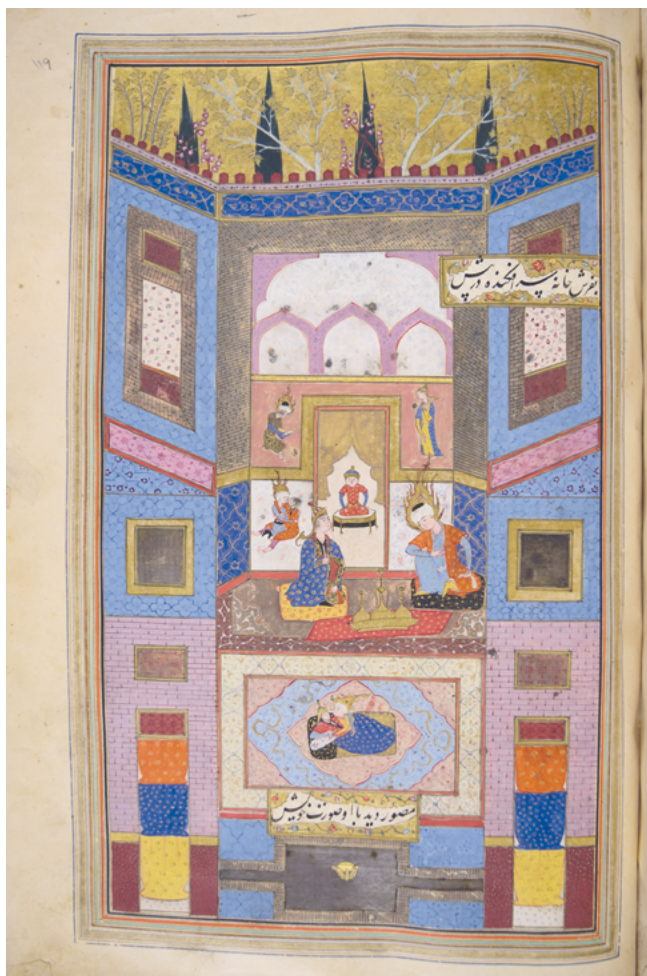 ١١٩
بفرش خانه سر افکنده در پیش
مصور دید با او صورت خویش